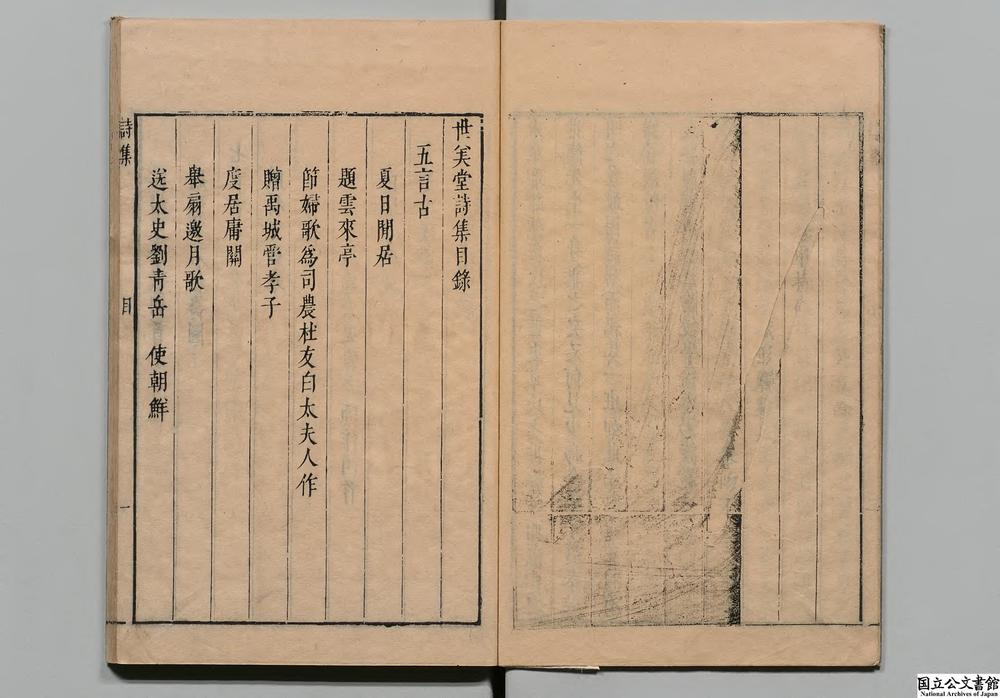 世美堂詩集目錄
五言古
夏日閒居
題雲來亭
節婦歌爲司農杜友白太夫人作
贈禹城管孝子
度居庸關
舉扇邀月歌
送太史劉青岳 使朝鮮
詩集 目 一
国立公文書館
National Archives of Japan